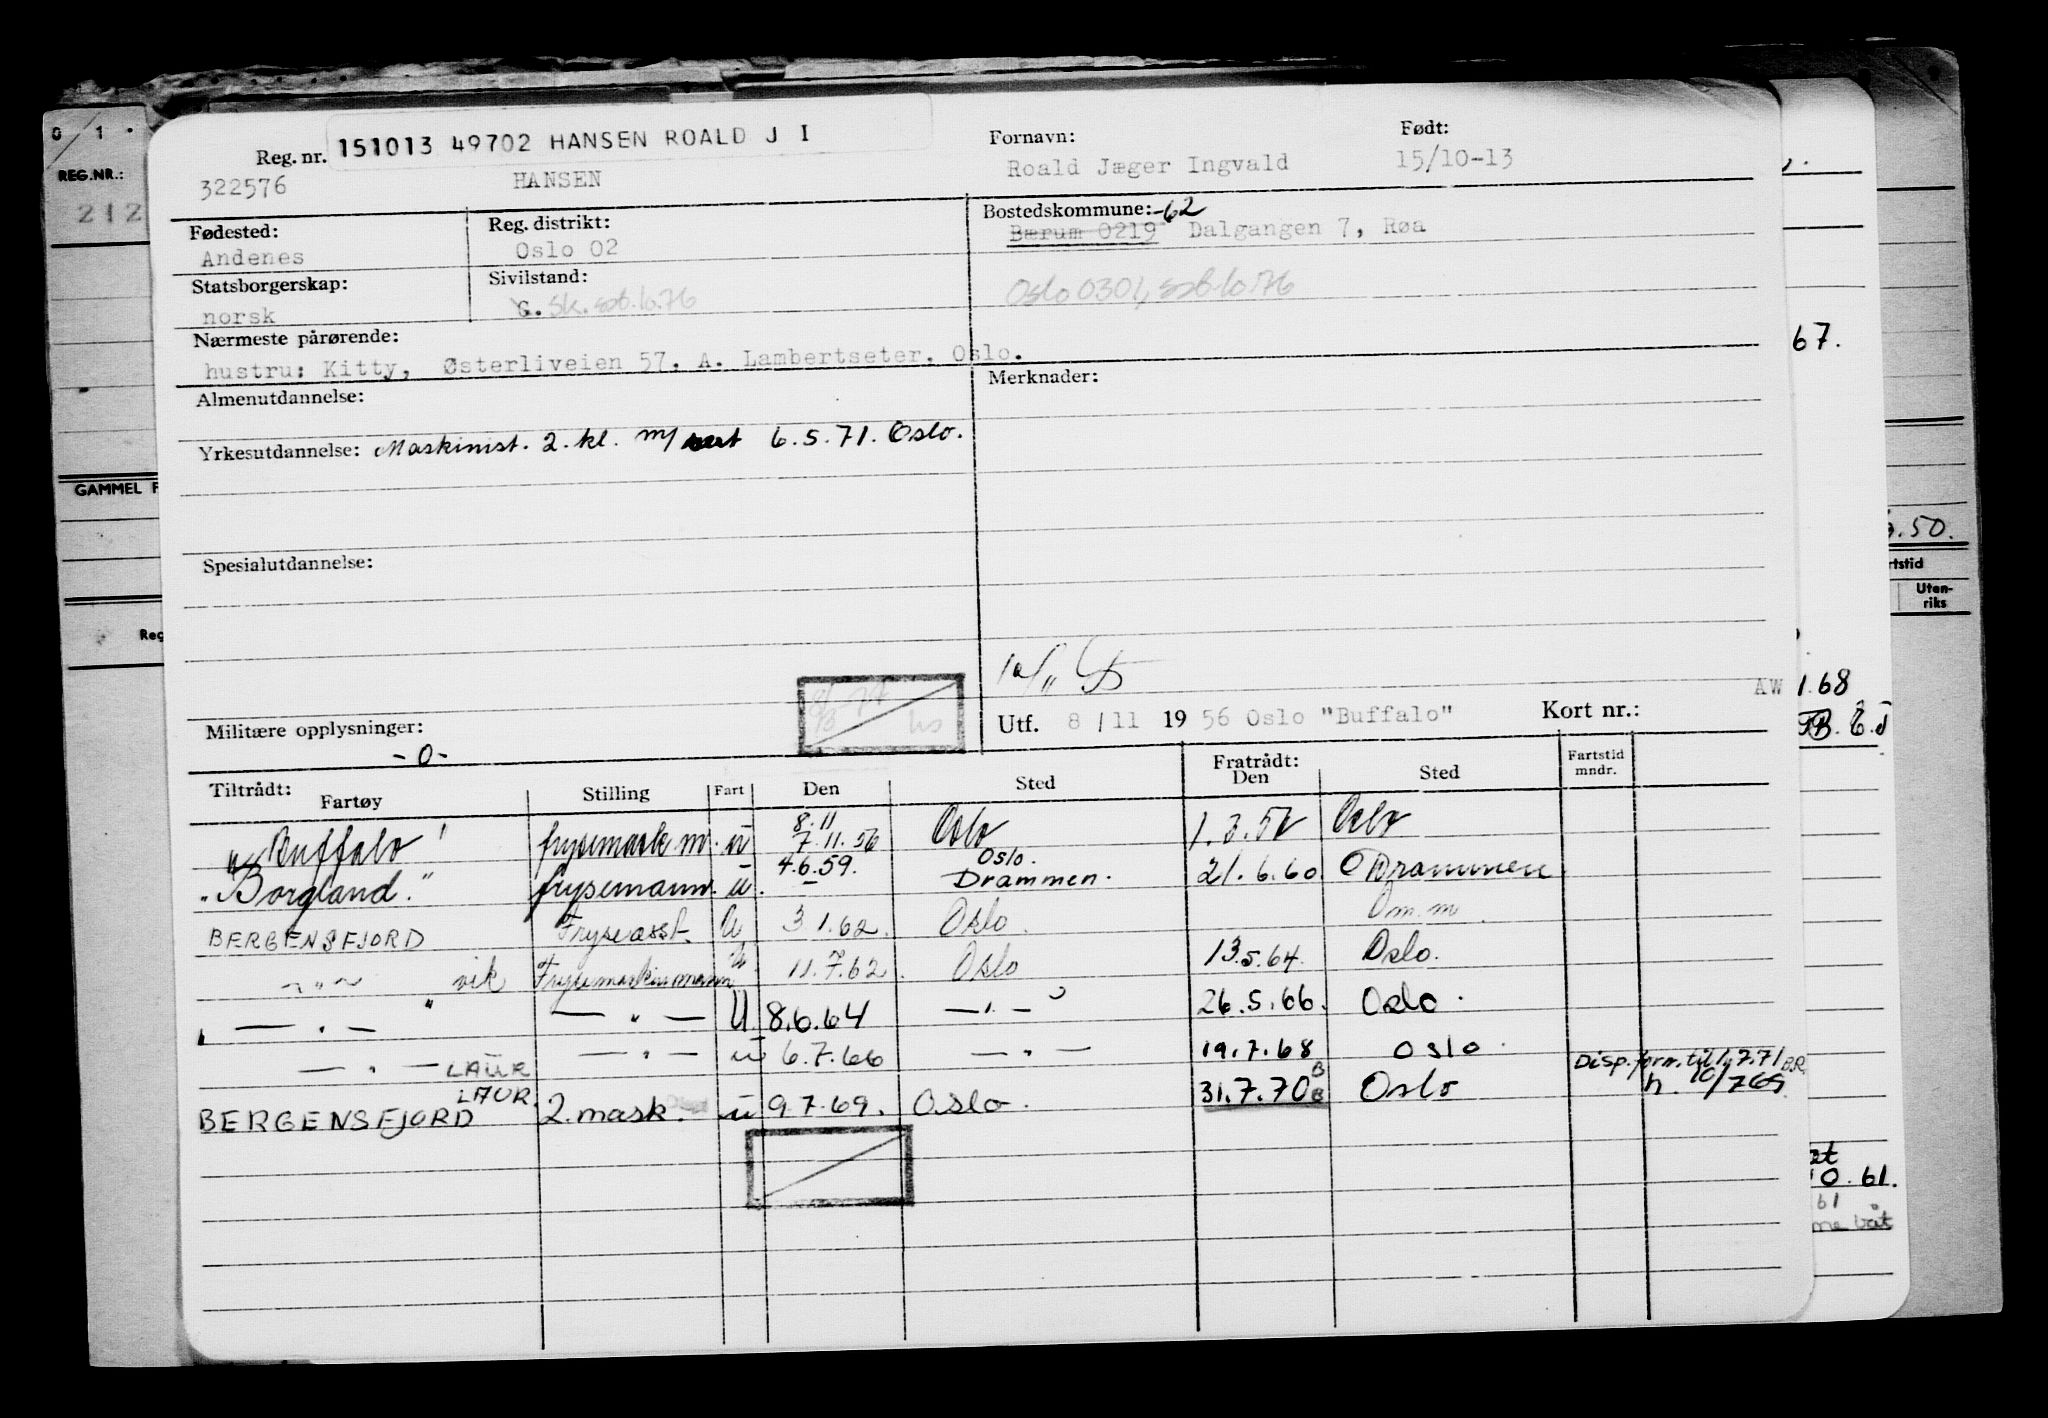 151013 49702 HANSEN ROALD J I
Reg. nr.
Fornavn:
Født:
322576
HANSEN
Roald Jæger Ingvald
15/10-13
Fødested:
Reg. distrikt:
Bostedskommune: -62
Andenes
Oslo 02
Bærum 0219 Dalgangen 7, Røa
Statsborgerskap:
Sivilstand:
norsk
G. Sk. spt. 10.76
Oslo 0301, spt. 10.76
Nærmeste pårørende:
hustru: Kitty, Østerliveien 57. A. Lambertseter, Oslo.
Almenutdannelse:
Merknader:
Yrkesutdannelse: Maskinist. 2. kl. m/ sert 6.5.71. Oslo.
Spesialutdannelse:
Militære opplysninger:
-0-
Utf. 8/11 1956 Oslo "Buffalo"
Kort nr.:
Tiltrådt:
Fartøy
Stilling
Fart
Den
Sted
Fratrådt:
Den
Sted
Fartstid
mndr.
"Buffalo" frysemask m. u 8.11 7.11.56 Oslo 1.3.57 Oslo
"Borgland." frysemann. u. 4.6.59. Oslo. Drammen. 21.6.60 Drammen
BERGENSFJORD Fryseasst. U 3.1.62. Oslo. Om.m.
— " — vik Frysemaskinmann U 11.7.62. Oslo 13.5.64. Oslo.
— " — — " — U 8.6.64 — " — 26.5.66. Oslo.
— " — LAUR — " — u 6.7.66 — " — 19.7.68 Oslo.
Disp. forn. til 1/7.71 B.R.
BERGENSFJORD LAUR. 2. mask. u 9.7.69. Oslo. 31.7.70 Oslo h. 10/769
0 1
REG.NR.:
212
GAMMEL F
Reg
67.
.50.
rtstid
Uten-
riks
AW 1.68
at
10.61.
61
me båt